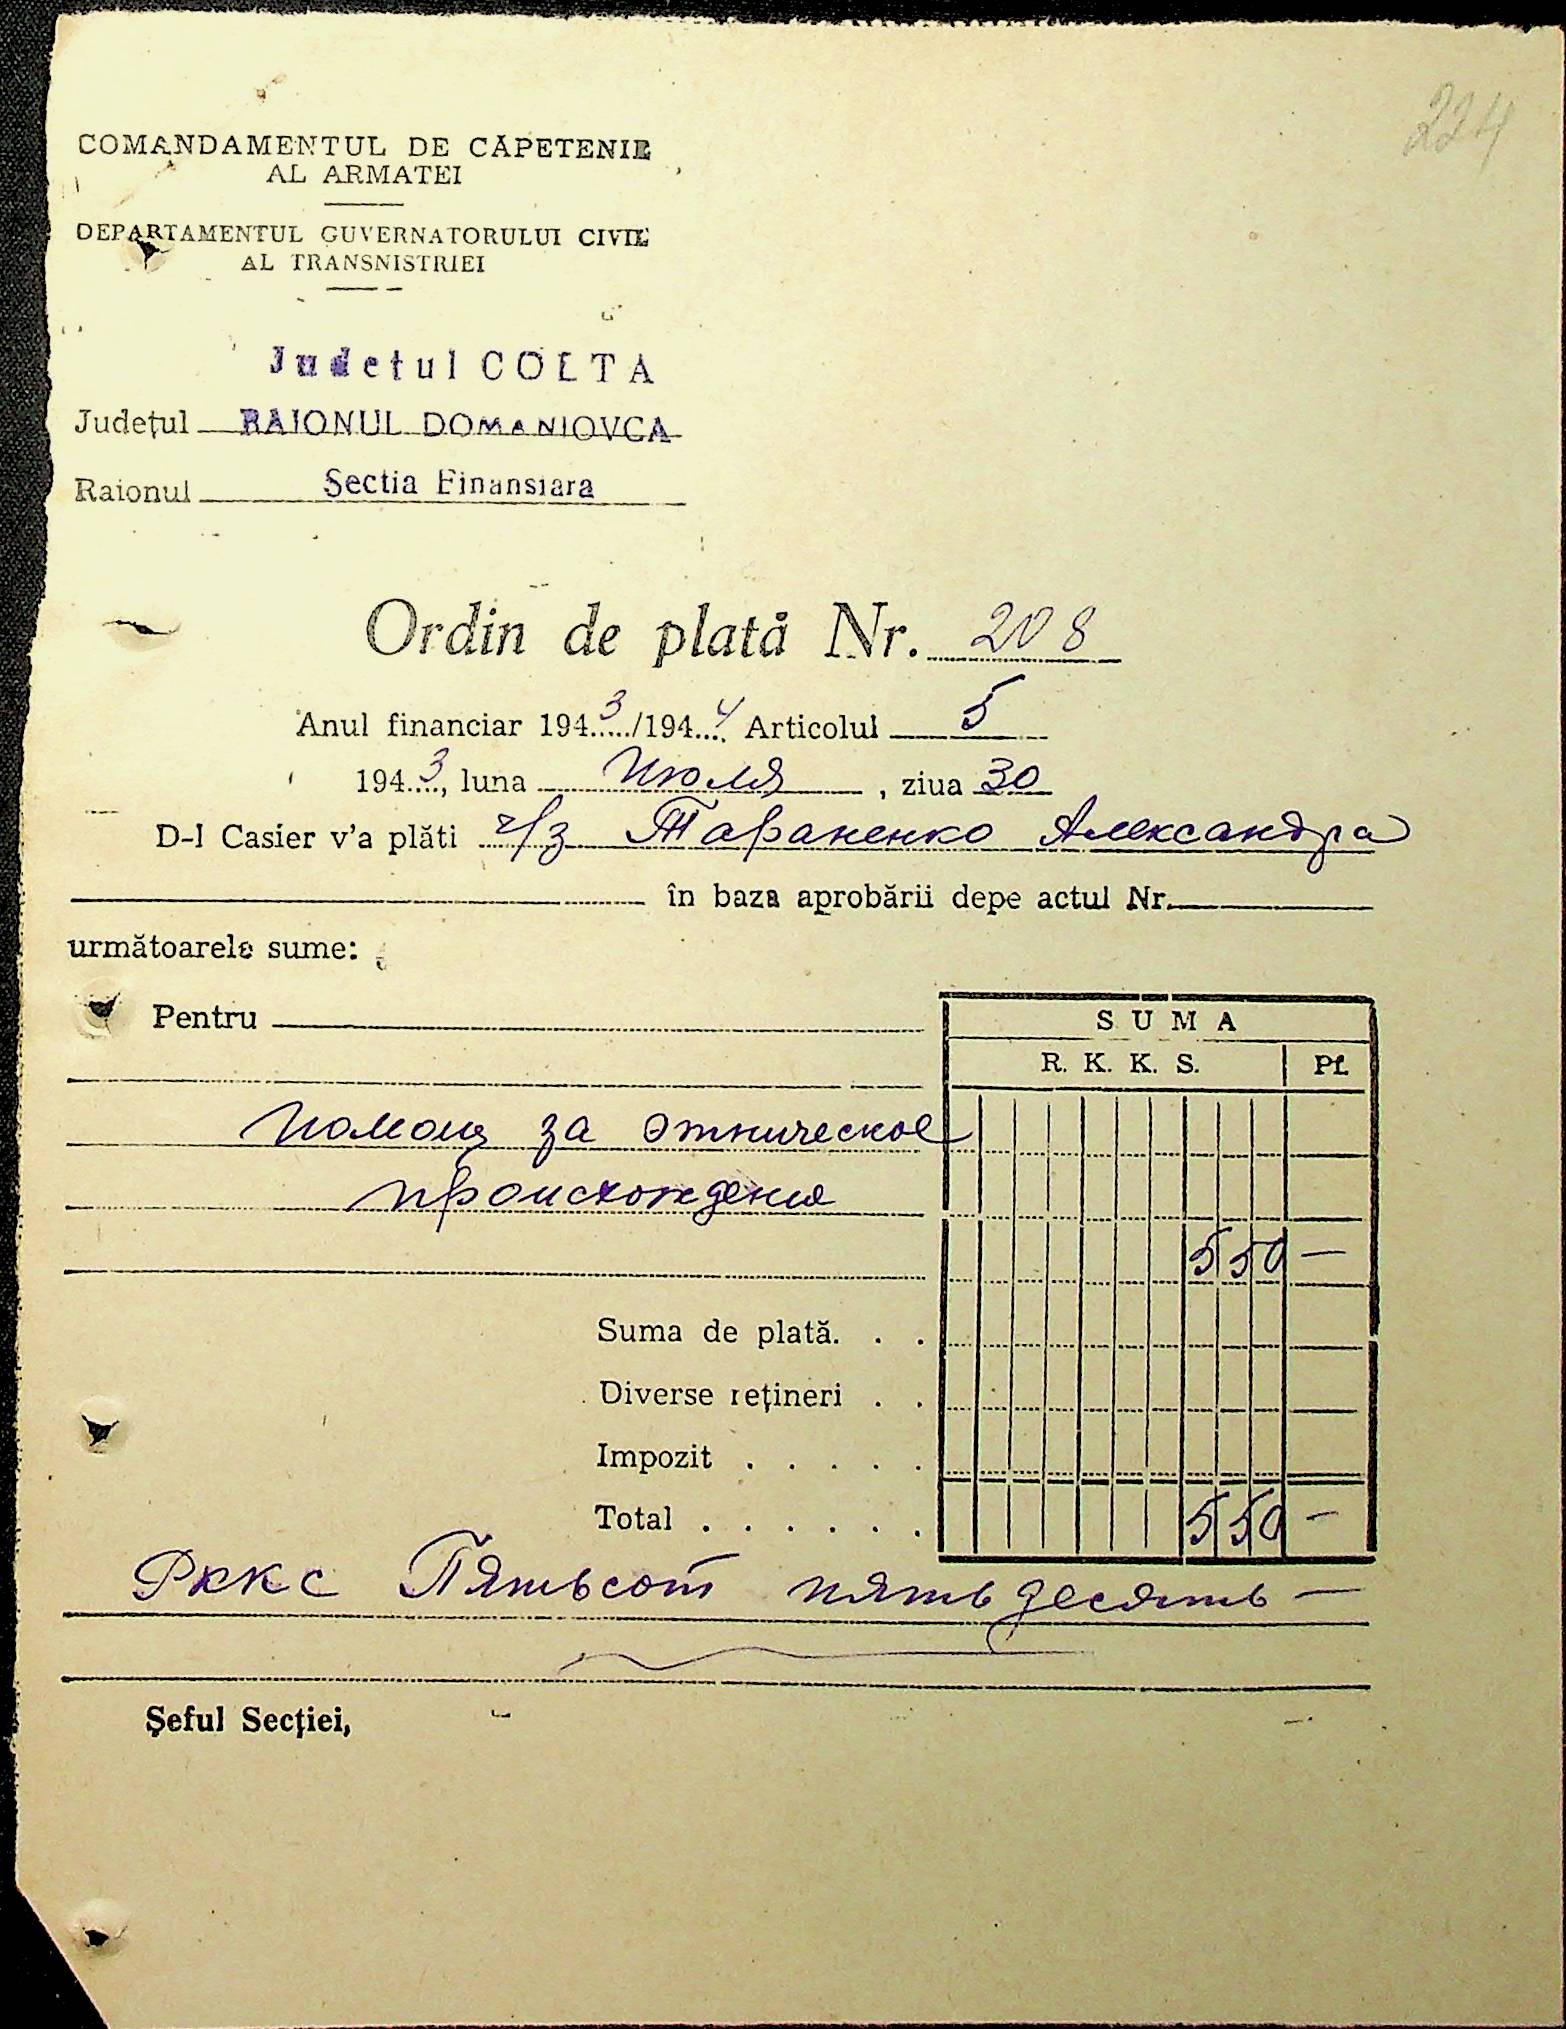 224
COMANDAMENTUL DE CĂPETENIE
AL ARMATEI
DEPARTAMENTUL GUVERNATORULUI CIVIL
AL TRANSNISTRIEI
Judetul COLTA
Județul RAIONUL DOMANIOVCA
Raionul Sectia Finansiara
Ordin de plată Nr. 208
Anul financiar 1943/1944 Articolul 5
1943, luna Июля, ziua 30
D-l Casier v'a plăti ч/з Тараненко Александра
în baza aprobării depe actul Nr.
următoarele sume:
Pentru
SUMA
R. K. K. S. Pf.
помощ за этническое
происхождения
550 —
Suma de plată. . .
Diverse rețineri . .
Impozit . . . . .
Total . . . . . . 550 —
Рккс Пятьсот пятьдесять —
Șeful Secției,